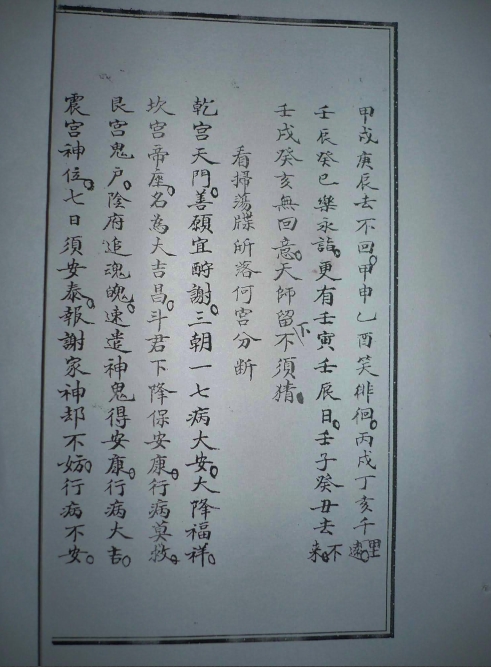 甲戌庚辰去不回。甲申乙酉笑徘徊。丙戌丁亥千里遠。
壬辰癸巳樂永詣。更有壬寅壬辰日。壬子癸丑去不来。
壬戌癸亥無回意。天師留下不須猜。
看掃蕩牒所落何宮分断
乾宮天門。善願宜酧謝。三朝一七病大安。大降福祥。
坎宮帝座。名為大吉昌。斗君下降保安康。行病莫救。
艮宮鬼户。陰府追魂魄。速造神鬼得安康。行病大吉。
震宮神位。七日須安泰。報謝家神却不妨。行病不安。